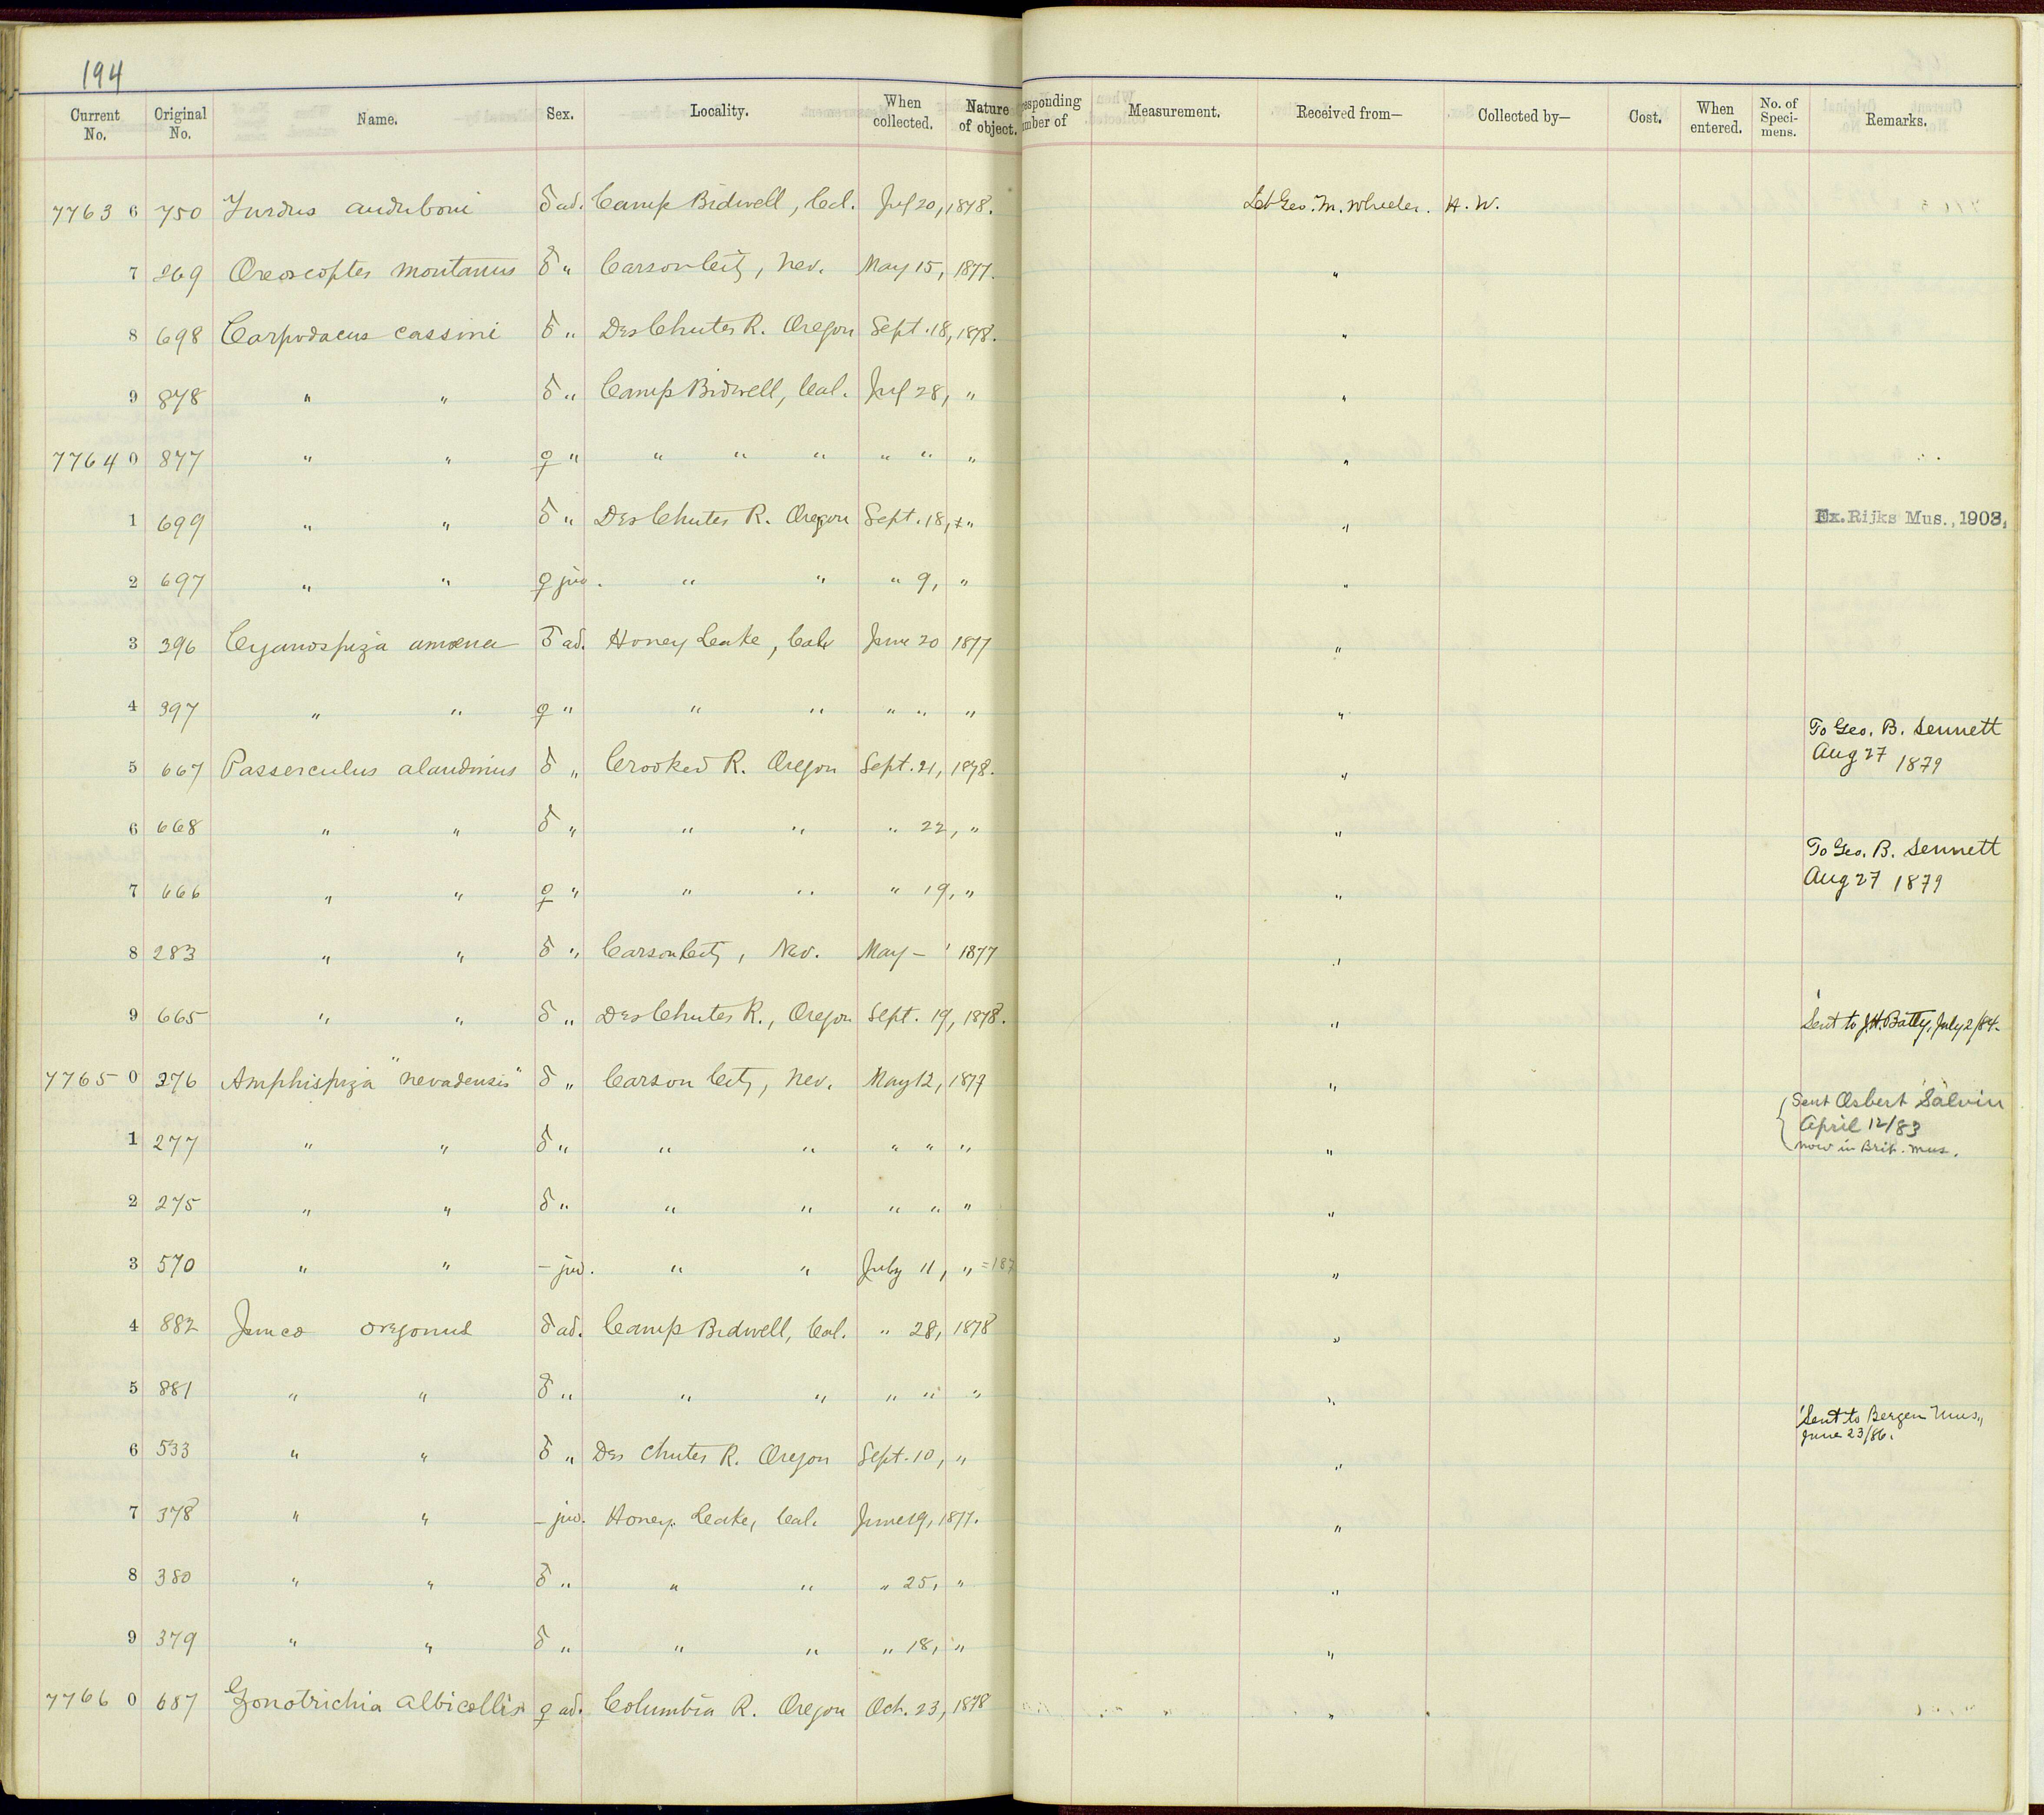 194
Current No. Original No. Name. Sex. Locality. When collected. Nature of object. responding mber of Measurement. Received from— Collected by— Cost. When entered. No. of Speci- mens. Remarks.
7763 6 750 Turdus auduboni ♂ ad. Camp Bidwell, Cal. Jul 20, 1878. Lt Geo. M. Wheeler. H. W.
7 269 Oreoscoptes montanus ♂ " Carson City, Nev. May 15, 1877. "
8 698 Carpodacus cassini ♂ " Des Chutes R. Oregon Sept. 18, 1878. "
9 878 " " ♂ " Camp Bidwell, Cal. Jul 28, " "
7764 0 877 " " ♀ " " " " " " " "
1 699 " " ♂ " Des Chutes R. Oregon Sept. 18, " " Ex. Rijks Mus., 1903,
2 697 " " ♀ juv. " " " 9, " "
3 396 Cyanospiza amoena ♂ ad. Honey Lake, Cal. June 20 1877 "
4 397 " " ♀ " " " " " " "
5 667 Passerculus alaudinus ♂ " Crooked R. Oregon Sept. 21, 1878. " To Geo. B. Sennett
Aug 27 1879
6 668 " " ♂ " " " " 22, " "
7 666 " " ♀ " " " " 19, " " To Geo. B. Sennett
Aug 27 1879
8 283 " " ♂ " Carson City, Nev. May – ' 1877 "
9 665 " " ♂ " Des Chutes R., Oregon Sept. 19, 1878. " Sent to J.H. Batty, July 2/84.
7765 0 276 Amphispiza "nevadensis" ♂ " Carson City, Nev. May 12, 1877 "
1 277 " " ♂ " " " " " " " Sent Osbert Salvin
April 12/83
now in Brit. Mus.
2 275 " " ♂ " " " " " " "
3 570 " " – juv. " " July 11, " =187 "
4 882 Junco oregonus ♂ ad. Camp Bidwell, Cal. " 28, 1878 "
5 881 " " ♂ " " " " " " "
6 533 " " ♂ " Des Chutes R. Oregon Sept. 10, " " Sent to Bergen Mus.,
June 23/86.
7 378 " " – juv. Honey Lake, Cal. June 19, 1877. "
8 380 " " ♂ " " " " 25, " "
9 379 " " ♂ " " " " 18, " "
7766 0 687 Zonotrichia albicollis ♀ ad. Columbia R. Oregon Oct. 23, 1878 "